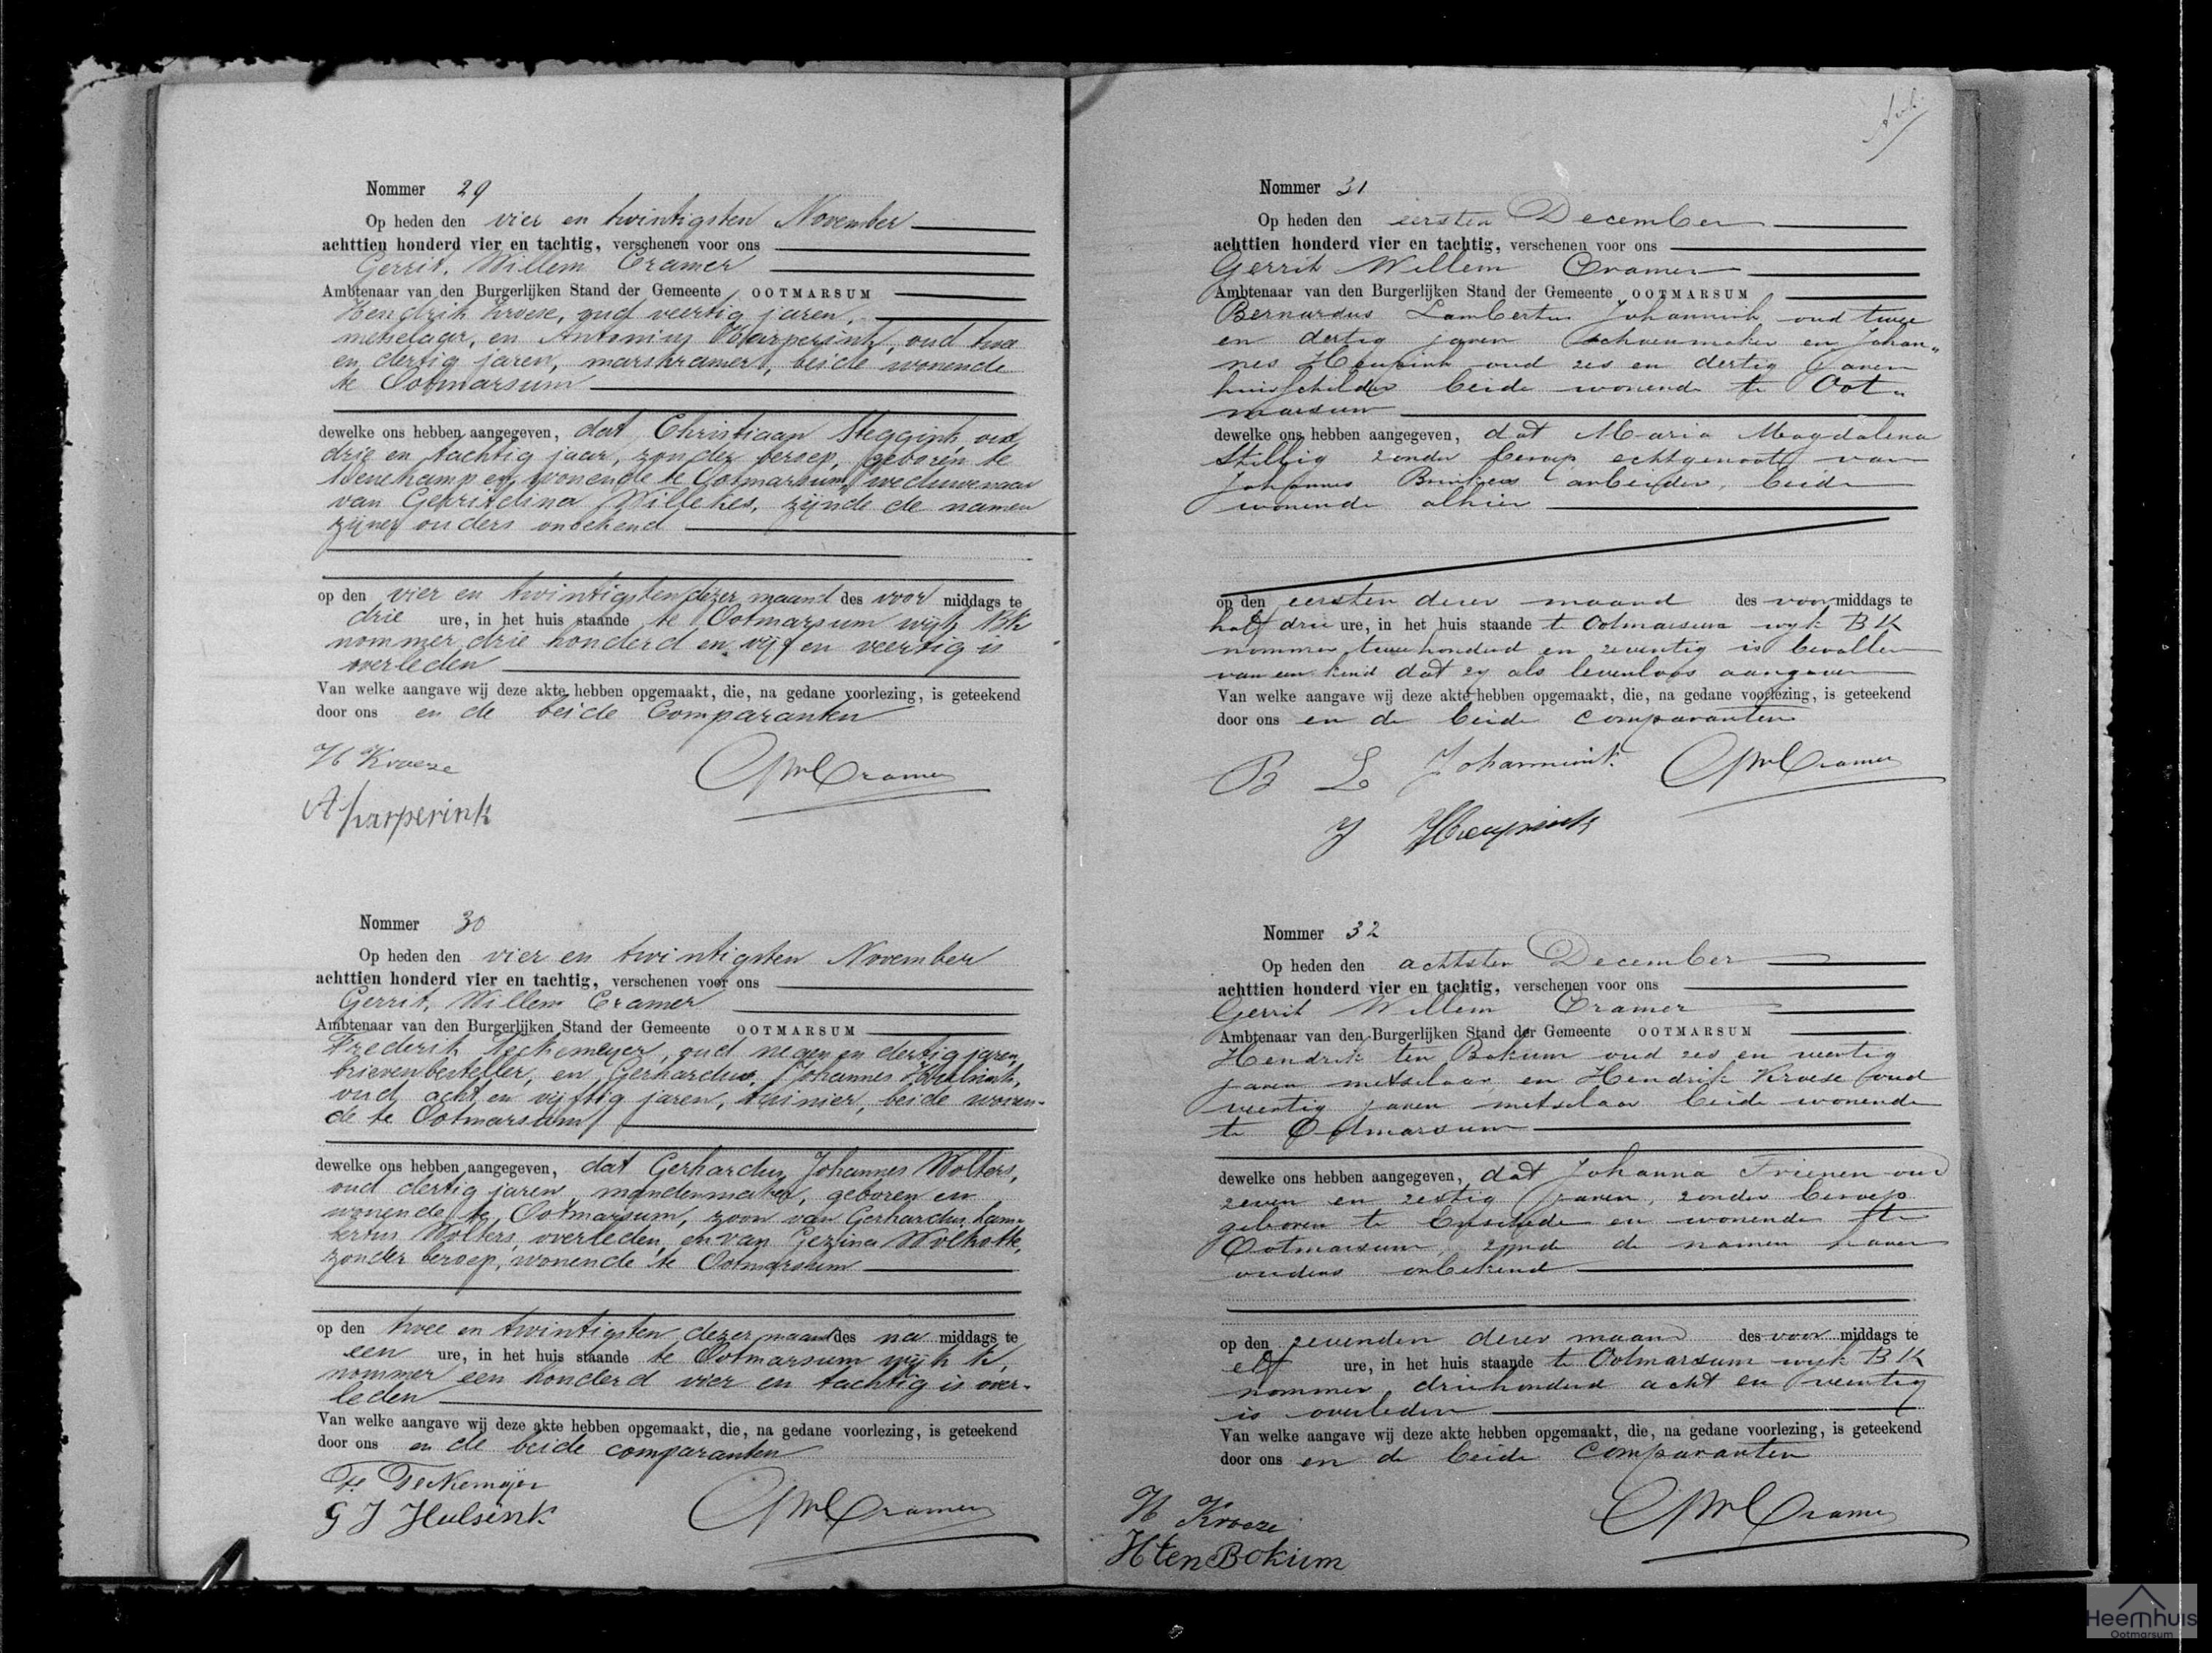 Nommer 29
Op heden den vier en twintigsten November
achttien honderd vier en tachtig, verschenen voor ons
Gerrit Willem Cramer
Ambtenaar van den Burgerlijken Stand der Gemeente OOTMARSUM
Hendrik Kroese, oud veertig jaren,
metselaar, en Antonius Harperink, oud twee
en dertig jaren, marskramer, beide wonende
te Ootmarsum
dewelke ons hebben aangegeven, dat Christiaan Steggink oud
drie en tachtig jaar, zonder beroep, geboren te
Denekamp en wonende te Ootmarsum, weduwenaar
van Gerridina Willekes, zijnde de namen
zijner ouders onbekend
op den vier en twintigsten dezer maand des voor middags te
drie ure, in het huis staande te Ootmarsum wijk BK
nommer drie honderd en vijf en veertig is
overleden
Van welke aangave wij deze akte hebben opgemaakt, die, na gedane voorlezing, is geteekend
door ons en de beide Comparanten
H Kroeze
GWCramer
A harperink
Nommer 30
Op heden den vier en twintigsten November
achttien honderd vier en tachtig, verschenen voor ons
Gerrit Willem Cramer
Ambtenaar van den Burgerlijken Stand der Gemeente OOTMARSUM
Frederik Teckemeyer, oud negen en dertig jaren,
brievenbesteller, en Gerhardus Johannes Hulsink,
oud acht en vijftig jaren, tuinier, beide wonen-
de te Ootmarsum
dewelke ons hebben aangegeven, dat Gerhardus Johannes Wolters,
oud dertig jaren, mandenmaker, geboren en
wonende te Ootmarsum, zoon van Gerhardus Lam-
bertus Wolters, overleden, en van Gezina Wolkotte,
zonder beroep, wonende te Ootmarsum
op den twee en twintigsten dezer maand des na middags te
een ure, in het huis staande te Ootmarsum wijk K,
nommer een honderd vier en tachtig is over-
leden
Van welke aangave wij deze akte hebben opgemaakt, die, na gedane voorlezing, is geteekend
door ons en de beide comparanten
Fr Teckemeijer
GWCramer
G J Hulsink
Nommer 31
Op heden den eersten December
achttien honderd vier en tachtig, verschenen voor ons
Gerrit Willem Cramer
Ambtenaar van den Burgerlijken Stand der Gemeente OOTMARSUM
Bernardus Lambertus Johannink oud twee
en dertig jaren schoenmaker en Johan„
nes Heupink oud zes en dertig jaren
huisschilder beide wonende te Oot„
marsum
dewelke ons hebben aangegeven, dat Maria Magdalena
zonder beroep echtgenoote van
Johannes arbeider, beide
wonende alhier
op den eersten dezer maand des voor middags te
half drie ure, in het huis staande te Ootmarsum wijk BK
nommer twee honderd en zeventig is bevallen
van een kind dat zij als levenloos aangaven
Van welke aangave wij deze akte hebben opgemaakt, die, na gedane voorlezing, is geteekend
door ons en de beide comparanten
B L Johannink
GWCramer
J Heupink
Nommer 32
Op heden den achtsten December
achttien honderd vier en tachtig, verschenen voor ons
Gerrit Willem Cramer
Ambtenaar van den Burgerlijken Stand der Gemeente OOTMARSUM
Hendrik ten Bokum oud zes en veertig
jaren metselaar, en Hendrik Kroese oud
veertig jaren metselaar beide wonende
te Ootmarsum
dewelke ons hebben aangegeven, dat Johanna Frienen oud
zeven en zestig jaren, zonder beroep
geboren te Enschede en wonende te
Ootmarsum, zijnde de namen harer
ouders onbekend
op den zevenden dezer maand des voor middags te
elf ure, in het huis staande te Ootmarsum wijk BK
nommer driehonderd acht en veertig
is overleden
Van welke aangave wij deze akte hebben opgemaakt, die, na gedane voorlezing, is geteekend
door ons en de beide Comparanten
H Kroeze
GWCramer
H ten Bokum
Heemhuis
Ootmarsum